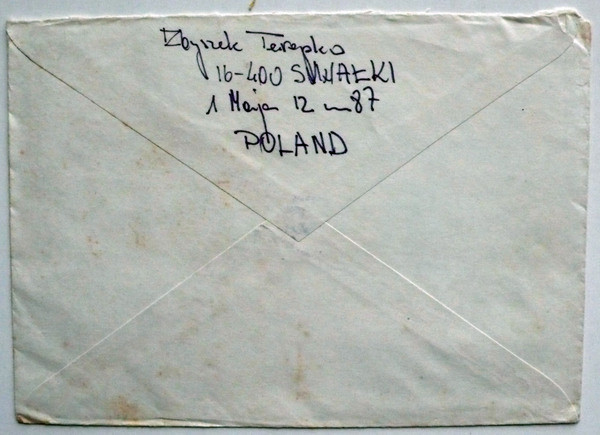 Zbyszek Terepko
16-400 SUWAŁKI
1 Maja 12 m 87
POLAND